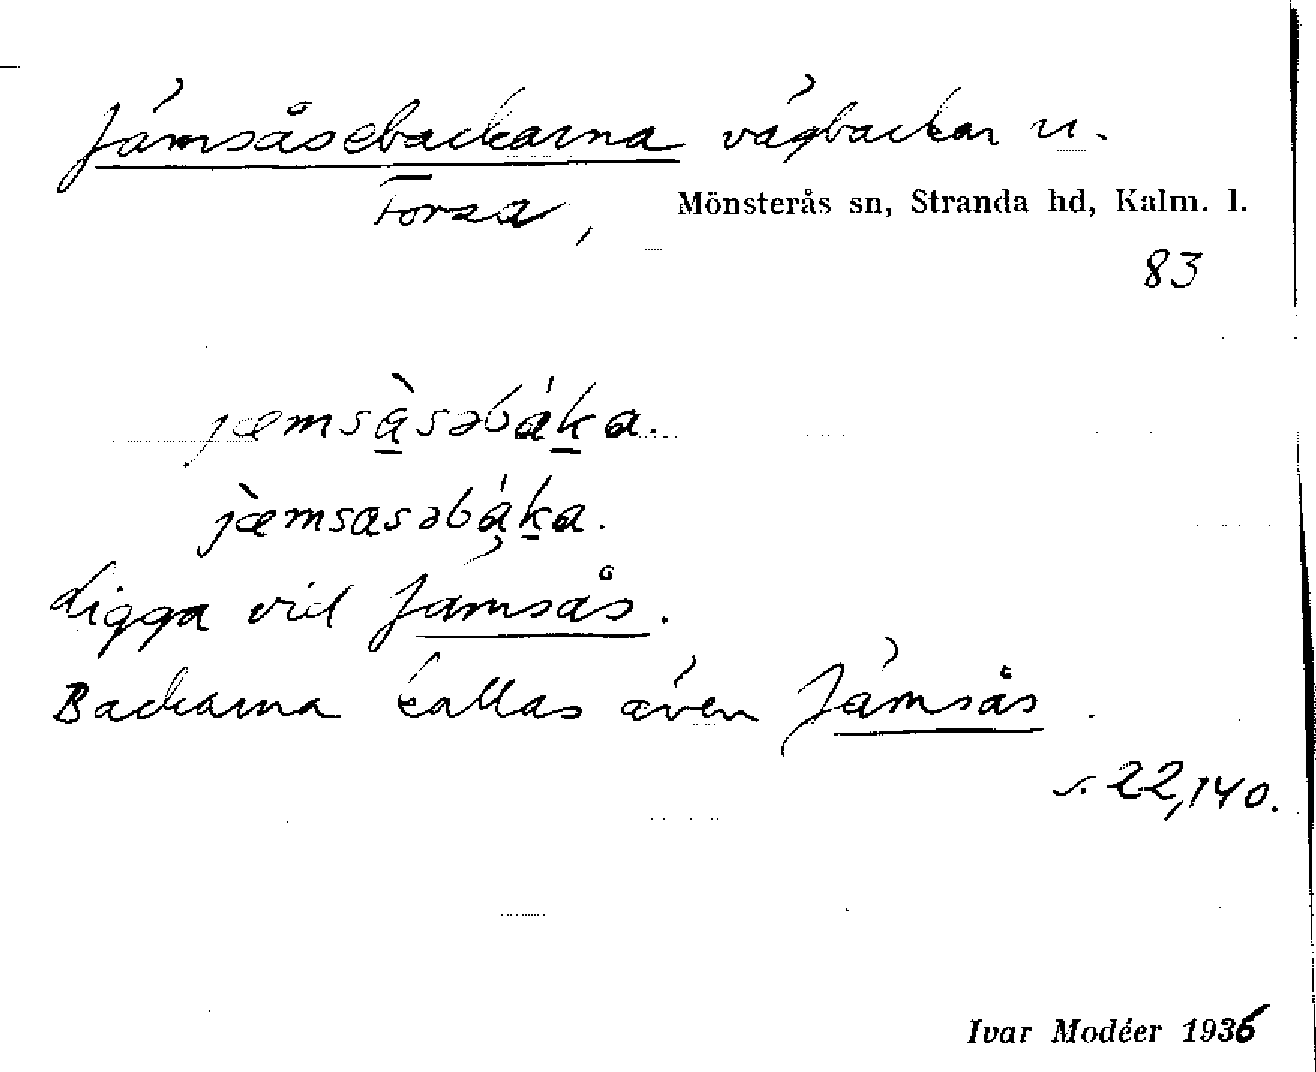 Jämsåsebackarna vägbackar u.
Forsa, Mönsterås sn, Stranda hd, Kalm. l.
83
jæmsàsəbáka.
jæ̀msasəbáka.
Ligga vid Jämsås.
Backarna kallas även Jämsås.
s. 22,140.
Ivar Modéer 1936